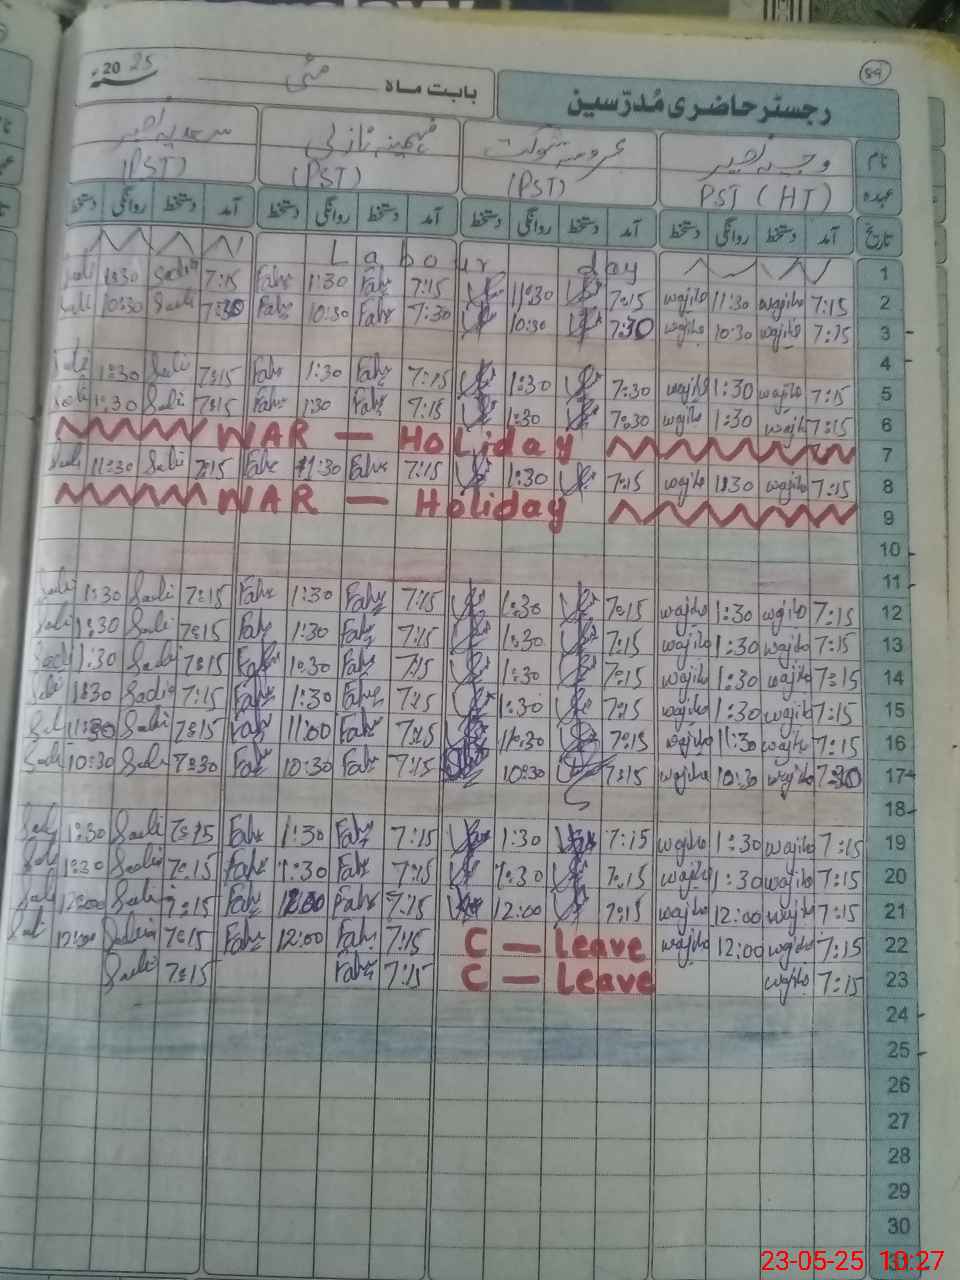 89
رجسٹر حاضری مُدرّسین
بابت ماہ مئی 2025ء
نام وجیہہ نصیر عروسہ شوکت فہمینہ نازلی سعدیہ نصیر
عہدہ PST (HT) (PST) (PST) (PST)
تاریخ آمد دستخط روانگی دستخط آمد دستخط روانگی دستخط آمد دستخط روانگی دستخط آمد دستخط روانگی دستخط
Labour day 1
Sadi 11:30 Sadia 7:15 Fahr 11:30 Fahr 7:15 11:30 7:15 wajiha 11:30 wajiha 7:15 2
Sadi 10:30 Sadi 7:30 Fahr 10:30 Fahr 7:30 10:30 7:30 wajiha 10:30 wajiha 7:15 3
4
1:30 Sadi 7:15 Fahr 1:30 Fahr 7:15 1:30 7:30 wajiha 1:30 wajiha 7:15 5
Sadi 1:30 Sadi 7:15 Fahr 1:30 Fahr 7:15 1:30 7:30 wajiha 1:30 wajiha 7:15 6
WAR — Holiday 7
Sadi 11:30 Sadi 7:15 Fahr 11:30 Fahr 7:15 1:30 7:15 wajiha 1:30 wajiha 7:15 8
WAR — Holiday 9
10
11
Sadi 1:30 Sadi 7:15 Fahr 1:30 Fahr 7:15 1:30 7:15 wajiha 1:30 wajiha 7:15 12
Sadi 1:30 Sadi 7:15 Fahr 1:30 Fahr 7:15 1:30 7:15 wajiha 1:30 wajiha 7:15 13
Sadi 1:30 Sadi 7:15 Fahr 1:30 Fahr 7:15 1:30 7:15 wajiha 1:30 wajiha 7:15 14
Sadi 1:30 Sadia 7:15 Fahr 1:30 Fahr 7:15 1:30 7:15 wajiha 1:30 wajiha 7:15 15
Sadi 11:30 Sadi 7:15 Fahr 11:00 Fahr 7:15 11:30 7:15 wajiha 11:30 wajiha 7:15 16
Sadi 10:30 Sadi 7:30 Fahr 10:30 Fahr 7:15 10:30 7:15 wajiha 10:30 wajiha 7:30 17
18
Sadi 1:30 Sadi 7:15 Fahr 1:30 Fahr 7:15 1:30 7:15 wajiha 1:30 wajiha 7:15 19
Sadi 1:30 Sadia 7:15 Fahr 1:30 Fahr 7:15 1:30 7:15 wajiha 1:30 wajiha 7:15 20
Sadi 12:00 Sadi 7:15 Fahr 12:00 Fahr 7:15 12:00 7:15 wajiha 12:00 wajiha 7:15 21
Sadi 12:00 Sadia 7:15 Fahr 12:00 Fahr 7:15 C — Leave wajiha 12:00 wajiha 7:15 22
Sadi 7:15 Fahr 7:15 C — Leave wajiha 7:15 23
24
25
26
27
28
29
30
23-05-25 10:27